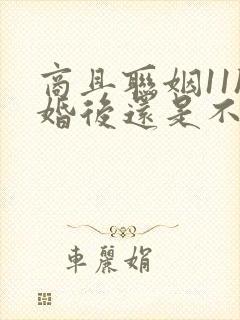 商且聯姻11
婚後還是不
車麗娟